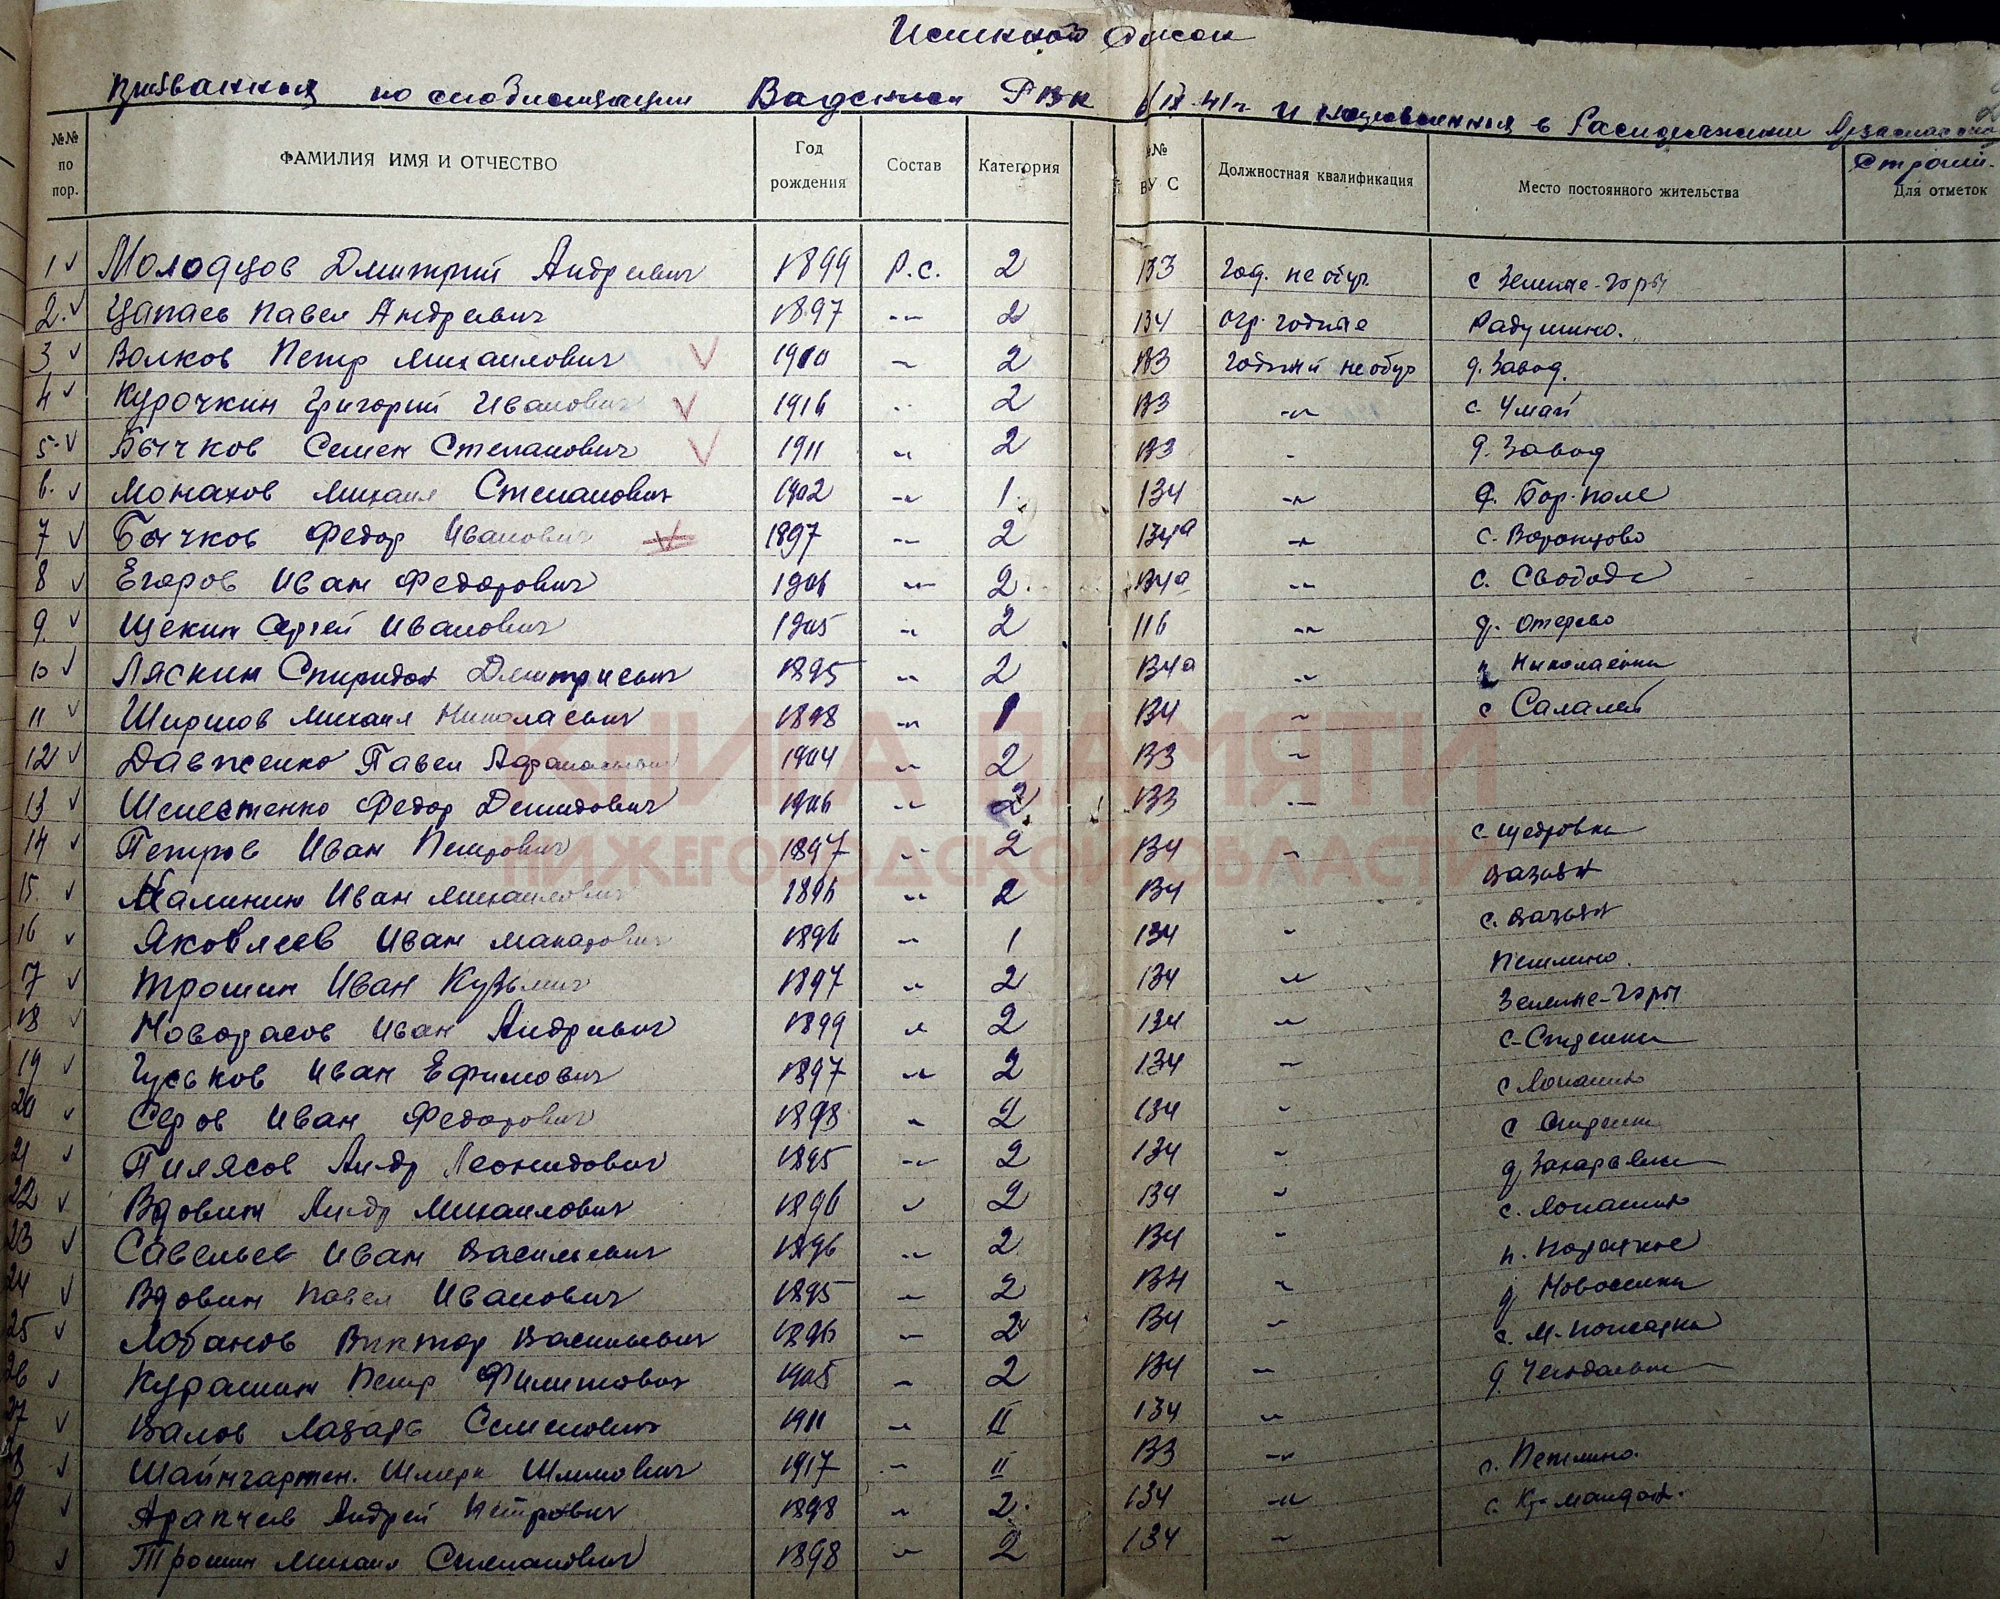 Именной список
призванных по мобилизации Вадским РВК 6/IX-41г. и направленных в Распоряжение
№№ по пор. ФАМИЛИЯ ИМЯ И ОТЧЕСТВО Год рождения Состав Категория №№ ВУС Должностная квалификация Место постоянного жительства Для отметок
1 Молодцов Дмитрий Андреевич 1899 р.с. 2 133 год. необуч. с Зеленые-горы
2. Цапаев Павел Андреевич 1897 -"- 2 134 огр. годные Радушино.
3 Волков Петр Михаилович 1910 -"- 2 133 годный необуч д. Завод.
4 Курочкин Григорий Иванович 1916 -"- 2 133 -"- с. Умай
5. Бычков Семен Степанович 1911 -"- 2 133 - д. Завод
6. Монахов Михаил Степанович 1902 -"- 1. 134 -"- д. Бор-поле
7 Бычков Федор Иванович 1897 -"- 2 134а -"- с. Воронцово
8 Егоров Иван Федорович 1906 -"- 2. 134а -"- с. Свобода
9. Щекин Сергей Иванович 1905 -"- 2 116 -"- д.
10 Ляскин Спиридон Дмитриевич 1895 -"- 2 134а -"- Николаевка
11 Ширшов Михаил Николаевич 1898 -"- 1 134 -"- с Салалей
12 Давженко Павел Афанасьевич 1904 -"- 2 133 -"-
13 Шелестенко Федор Демидович 1906 -"- 2 133 -"-
14 Петров Иван Петрович 1897 -"- 2 134 -"- с. Щедровка
15 Калинин Иван Михаилович 1896 -"- 2 134 Вазьян
16 Яковлев Иван Макарович 1896 -"- 1 134 -"- с. Вазьян
17 Трошин Иван Кузьмич 1897 -"- 2 134 -"- Петлино.
18 Иван Андреевич 1899 -"- 2 134 -"- Зеленые-Горы
19 Гуськов Иван Ефимович 1897 -"- 2 134 -"- с. Стрелка
20 Серов Иван Федорович 1898 -"- 2 134 -"- с Лопатино
21 Пилясов Андр Леонидович 1895 -"- 2 134 -"- с Стрелка
22 Вдовин Андр Михаилович 1896 -"- 2 134 -"- д
23 Савельев Иван Васильевич 1896 -"- 2 134 -"- с. Лопатино
24 Вдовин Павел Иванович 1895 -"- 2 134 -"- п.
25 Лобанов Виктор Васильевич 1896 -"- 2 134 -"- д Новоселки
26 Курашин Петр Филиппович 1905 -"- 2 134 -"- с. М-
27 Валов Лазарь Семенович 1911 -"- II 134 -"- д.
28 Шайнгартен. Шмерк 1917 -"- II 133 -"-
29 Арапчев Андрей Петрович 1898 -"- 2. 134 -"- с. Петлино.
Трошин Михаил Степанович 1898 -"- 2 134 -"- с.
КНИГА ПАМЯТИ
НИЖЕГОРОДСКОЙ ОБЛАСТИ